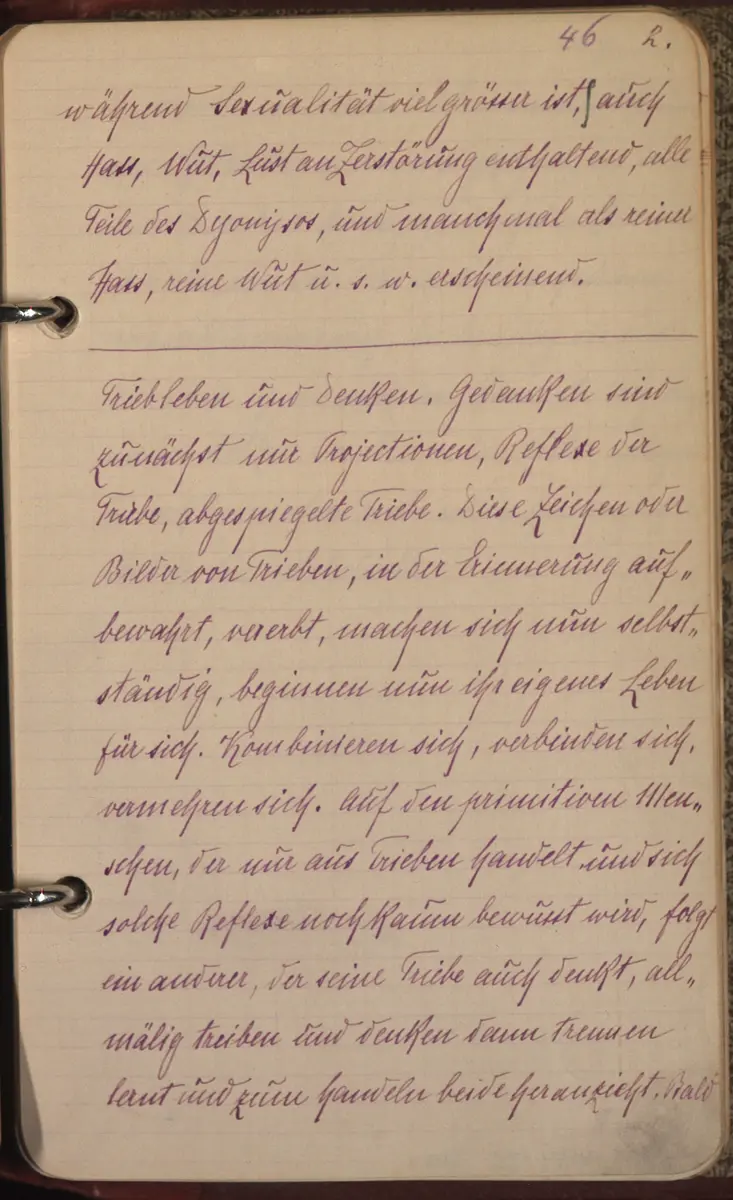 46 2.
während Sexualität viel grösser ist, auch
Hass, Wut, Lust an Zerstörung enthaltend, alle
Teile des Dyonysos, und manchmal als reiner
Hass, reine Wut u. s. w. erscheinend.
Triebleben und Denken. Gedanken sind
zunächst nur Projectionen, Reflexe der
Triebe, abgespiegelte Triebe. Diese Zeichen oder
Bilder von Trieben, in der Erinnerung auf„
bewahrt, vererbt, machen sich nun selbst„
ständig, beginnen nun ihr eigenes Leben
für sich. Kombinieren sich, verbinden sich,
vermehren sich. Auf den primitiven Men„
schen, der nur aus Trieben handelt und sich
solche Reflexe noch kaum bewusst wird, folgt
ein anderer, der seine Triebe auch denkt, all„
mälig treiben und denken dann trennen
lernt und zum handeln beide heranzieht. Bald